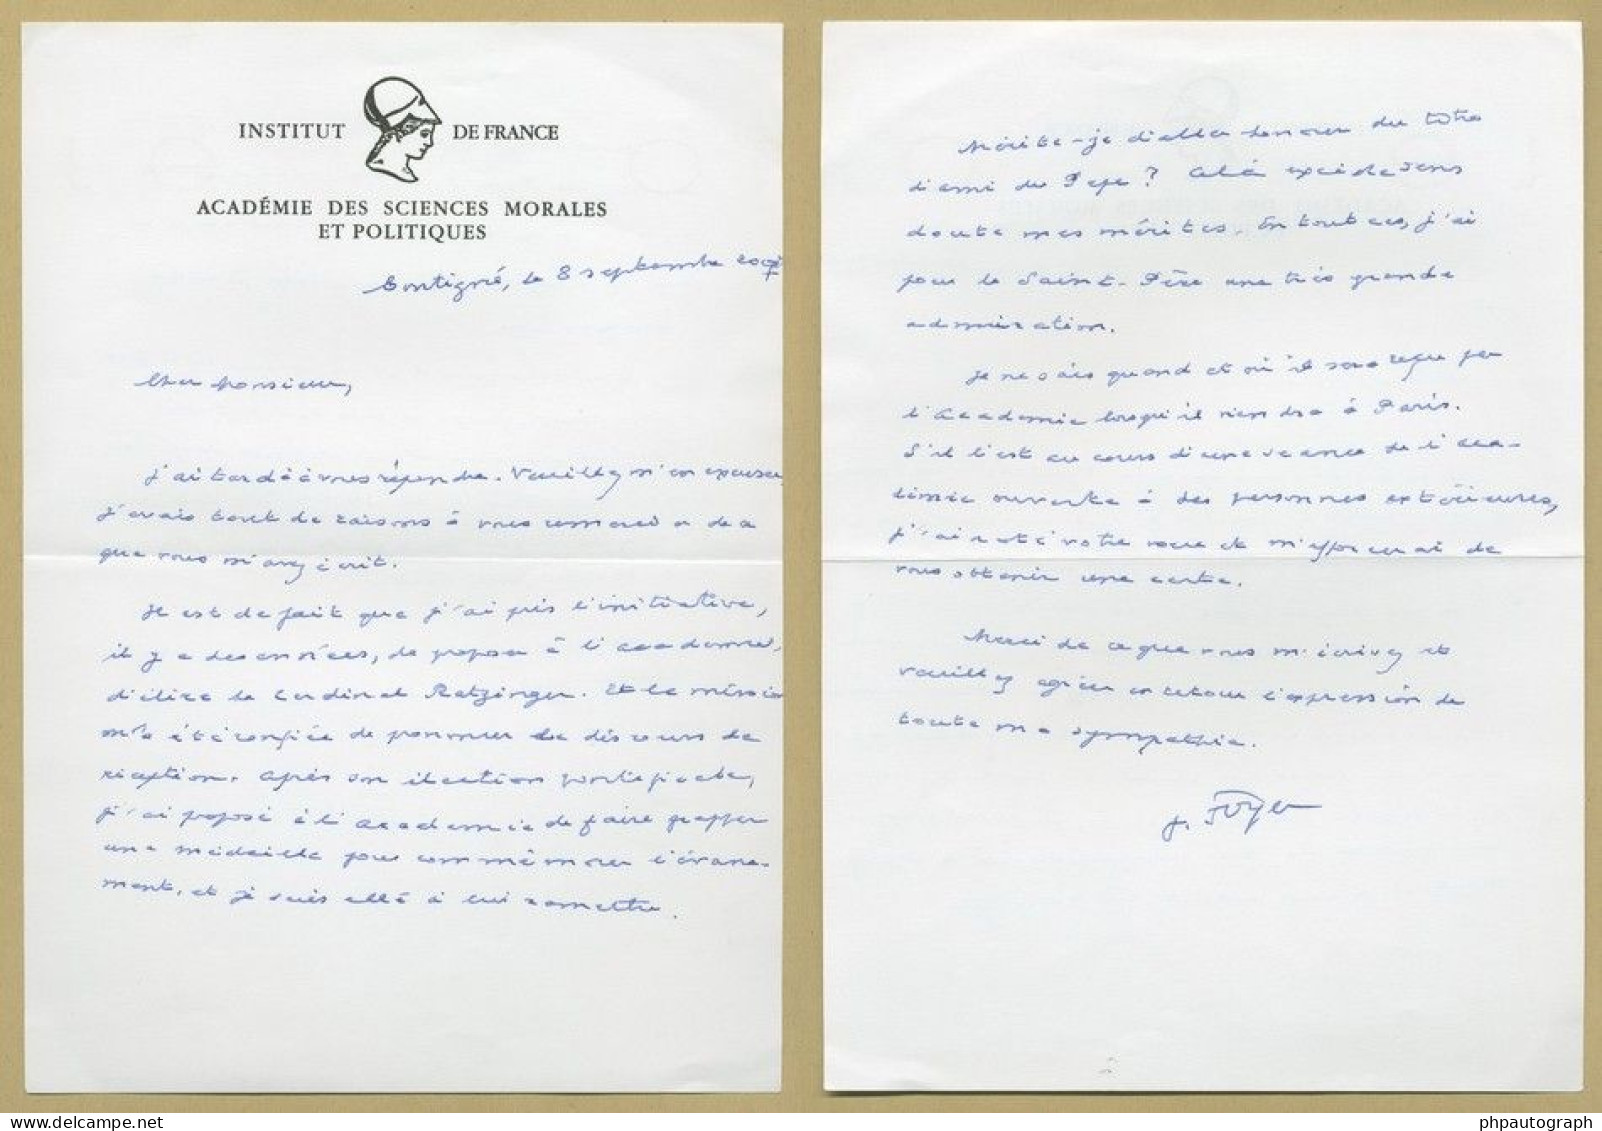 INSTITUT DE FRANCE
ACADÉMIE DES SCIENCES MORALES
ET POLITIQUES
Contigné, le 8 septembre 2007
Cher Monsieur,
J'ai tardé à vous répondre. Veuillez m'en excuser,
j'avais tant de raisons à vous remercier de ce
que vous m'avez écrit.
Il est de fait que j'ai pris l'initiative,
il y a des années, de proposer à l'académie,
d'élire le Cardinal Ratzinger. Et la mission
m'a été confiée de prononcer le discours de
réception. Après son élection pontificale,
j'ai proposé à l'Académie de faire frapper
une médaille pour commémorer l'évène-
ment, et je suis allé à lui remettre.
Mérite-je d'aller honorer du titre
d'ami du Pape ? Cela excède sans
doute mes mérites. En tout cas, j'ai
pour le Saint-Père une très grande
admiration.
Je ne sais quand et où il sera reçu par
l'Académie lorsqu'il viendra à Paris.
S'il l'est au cours d'une séance de l'Aca-
démie ouverte à des personnes extérieures,
j'ai noté votre voeu et m'efforcerai de
vous obtenir une carte.
Merci de ce que vous m'écrivez et
veuillez agréer en retour l'expression de
toute ma sympathie.
J. Foyer
phpautograph